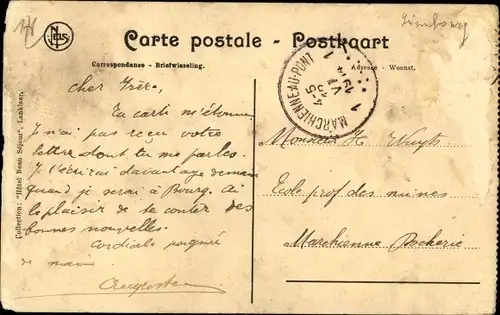 Limbourg
Nels
Carte postale - Postkaart
Correspondance - Briefwisseling.
Adresse - Woonst.
Collection: "Hôtel Beau Séjour", Lanklaer.
MARCHIENNE-AU-PONT
cher Frère,
Ta carte m'étonne
Je n'ai pas reçu votre
lettre dont tu me parles.
Je t'écrirai davantage demain
quand je serai à Bourg. Ai
le plaisir de te conter des
bonnes nouvelles.
Cordiale poignée
de main
Monsieur H. Wuyts
Ecole prof des mines
Marchienne Docherie